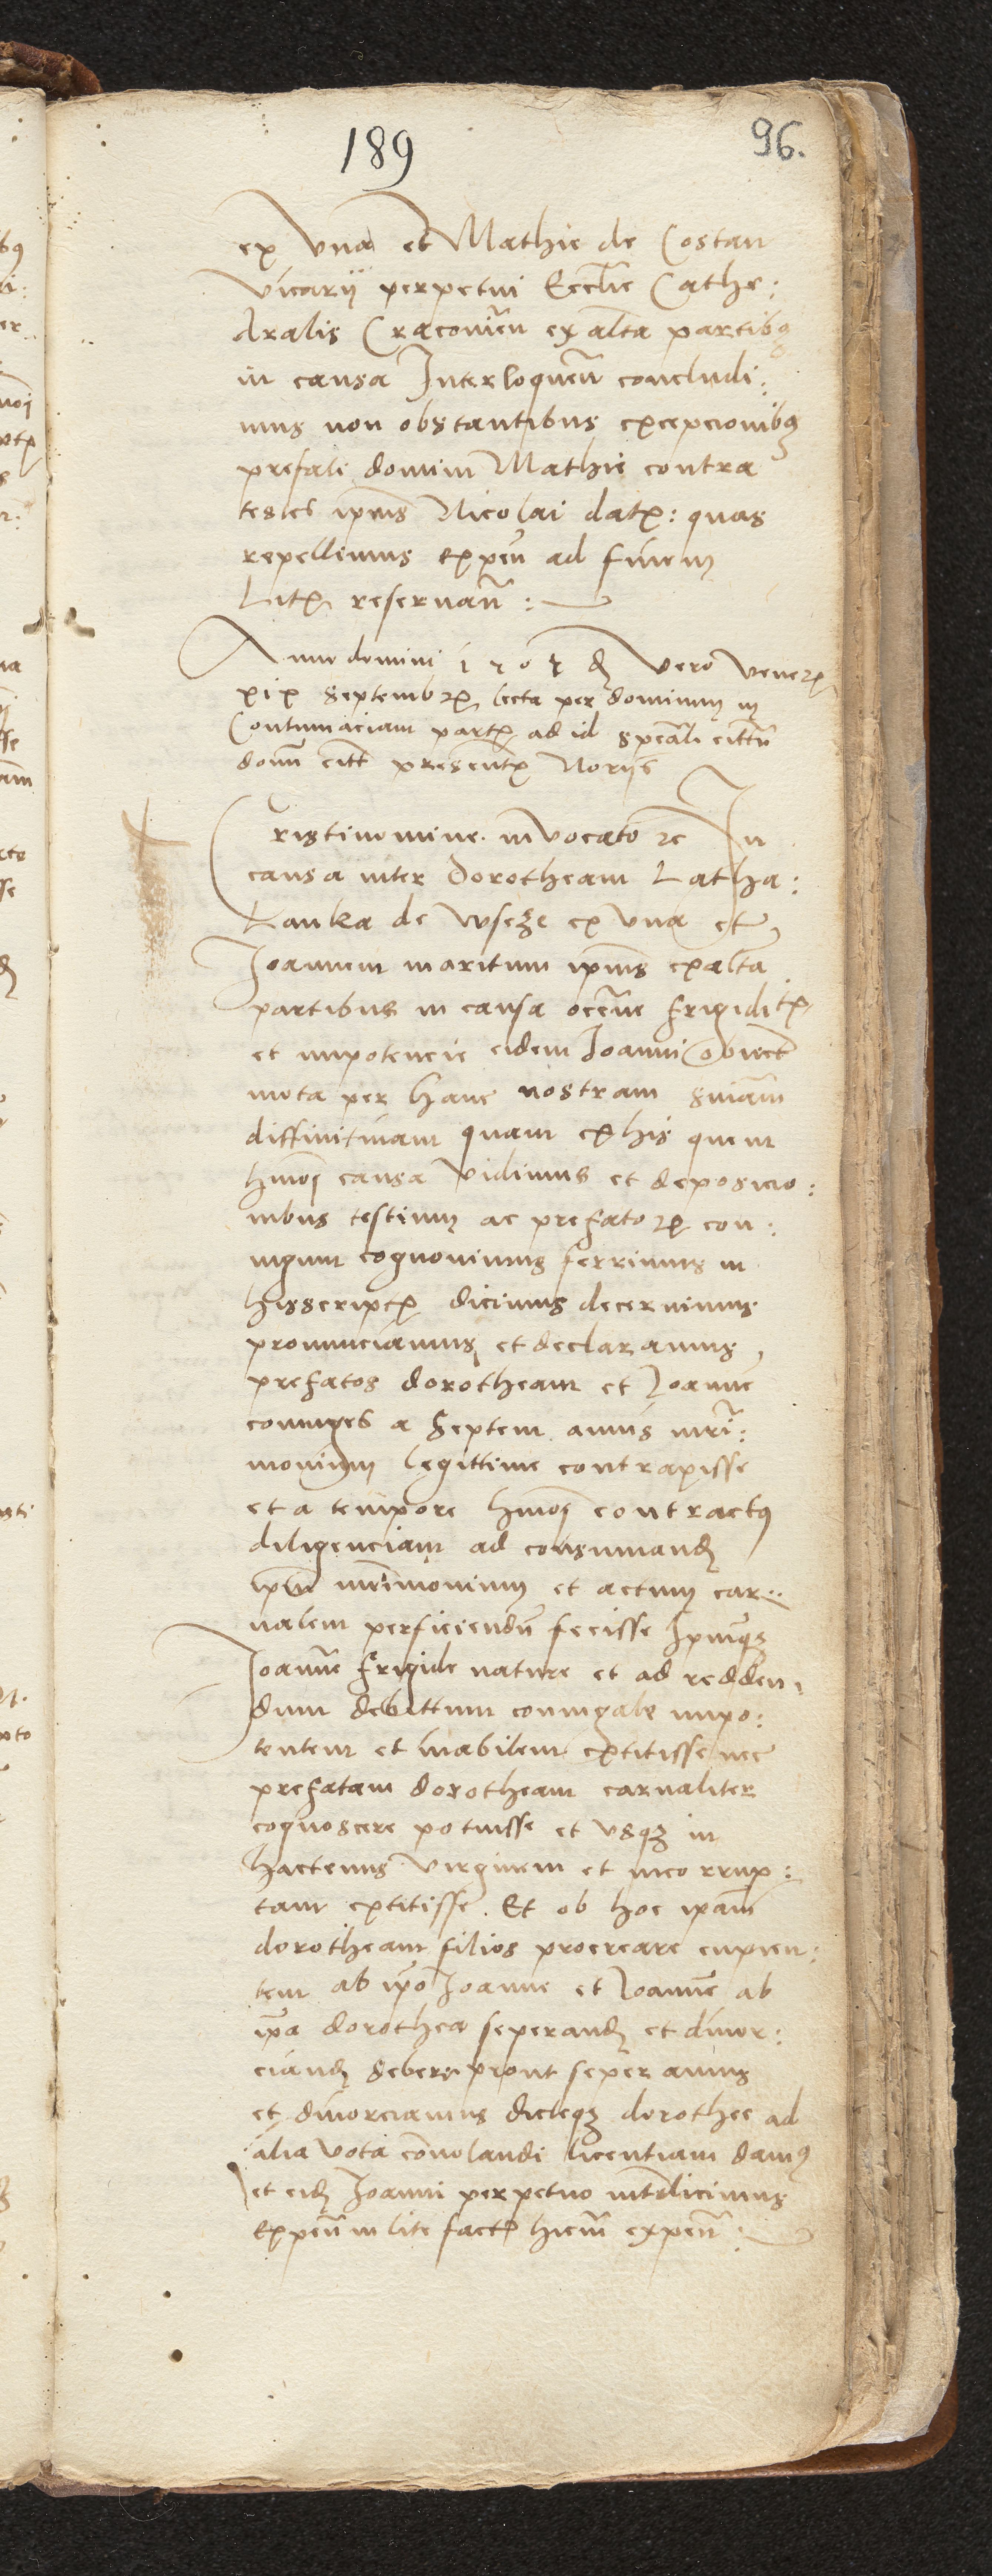 189
96.
ex vna et Mathie de Costan
vicarij perpetui Eccl̅ie Cathe:
dralis Cracouien̅ ex alt̅a partibꝰ
in causa Interloquen̅ concludi:
mus non obstantibus excepcionibꝰ
prefati domini Mathie contra
testes ip̅ius Nicolai datꝭ: quas
repellimus exspen̅ ad finem
Litꝭ reseruan̅:
Anno domini 1505 d vero venerꝭ
xix Septembrꝭ lecta per dominum in
Contumaciam partꝭ ad id sp̅eali citt̅i
dom̅ citt̅ presentꝭ Norijs
Cristi nomine invocato ꝛc In
causa inter Dorotheam Latha:
Lanka de wseze ex vna et
Joannem maritum ip̅ius ex alt̅a
partibus in causa occ̅one frigiditꝭ
et impotencie eidem Joanni obiect̅
mota per hanc nostram sn̅iam
diffinitiuam quam ex his que in
hm̅oi causa vidimus et deposicio:
nibus testium ac prefatorꝝ con:
iugum cognouimus ferrimus in
hisscriptꝭ dicimus decernimus
pronunciamus et declaramus
prefatos dorotheam et Joanne̅
coniuges a septem annis mr̅i:
monium legittime contraxisse
et a tempore hm̅oi contractꝰ
diligenciam ad consumand
ip̅m mr̅imonium et actum car:
nalem perficiendu̅ fecisse Ip̅umqꝫ
Joanne̅ frigide nature et ad redden:
dum debittum coniugale impo:
tentem et inabilem extitisse nec
prefatam dorotheam carnaliter
cognoscere potuisse et vsqꝫ in
hactenus virginem et incorrup:
tam extitisse. Et ob hoc ip̅am
dorotheam filios procreare cupien:
tem ab ip̅o Joanne et Joanne̅ ab
ip̅a dorothea seperand et diuor:
ciand debere prout seperamus
et diuorciamus dicteqꝫ dorothee ad
alia vota co̅nuolandi licentiam damꝰ
et eid Joanni perpetuo int̅erdicimus
Expen̅ in lite factꝭ hicm̅ expen̅